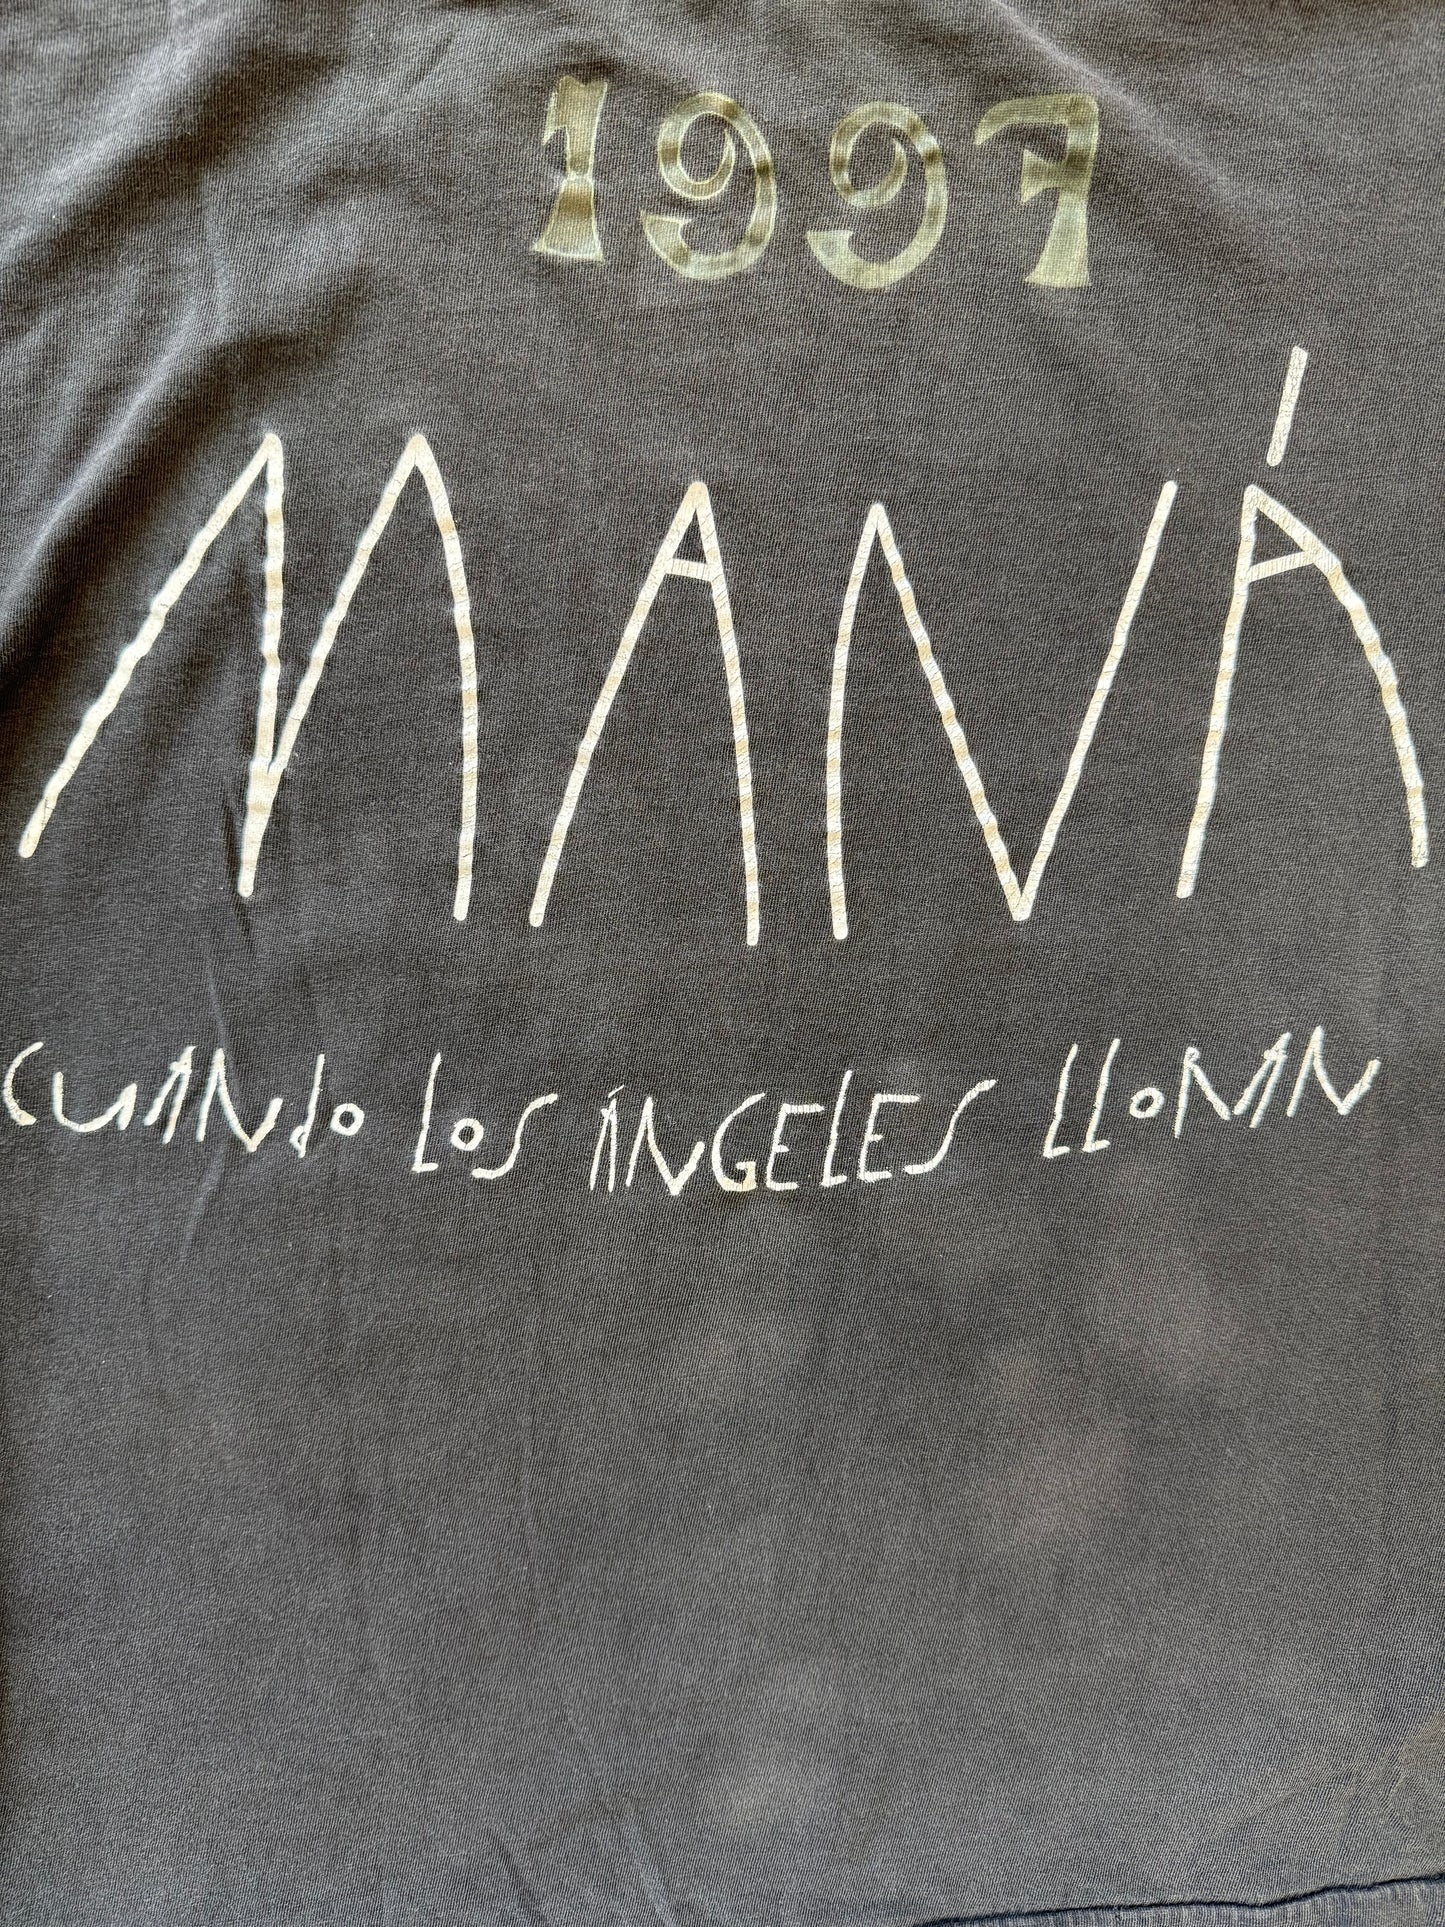 1997
MANÁ
CUANdo Los ÁNGELES LLoRAN